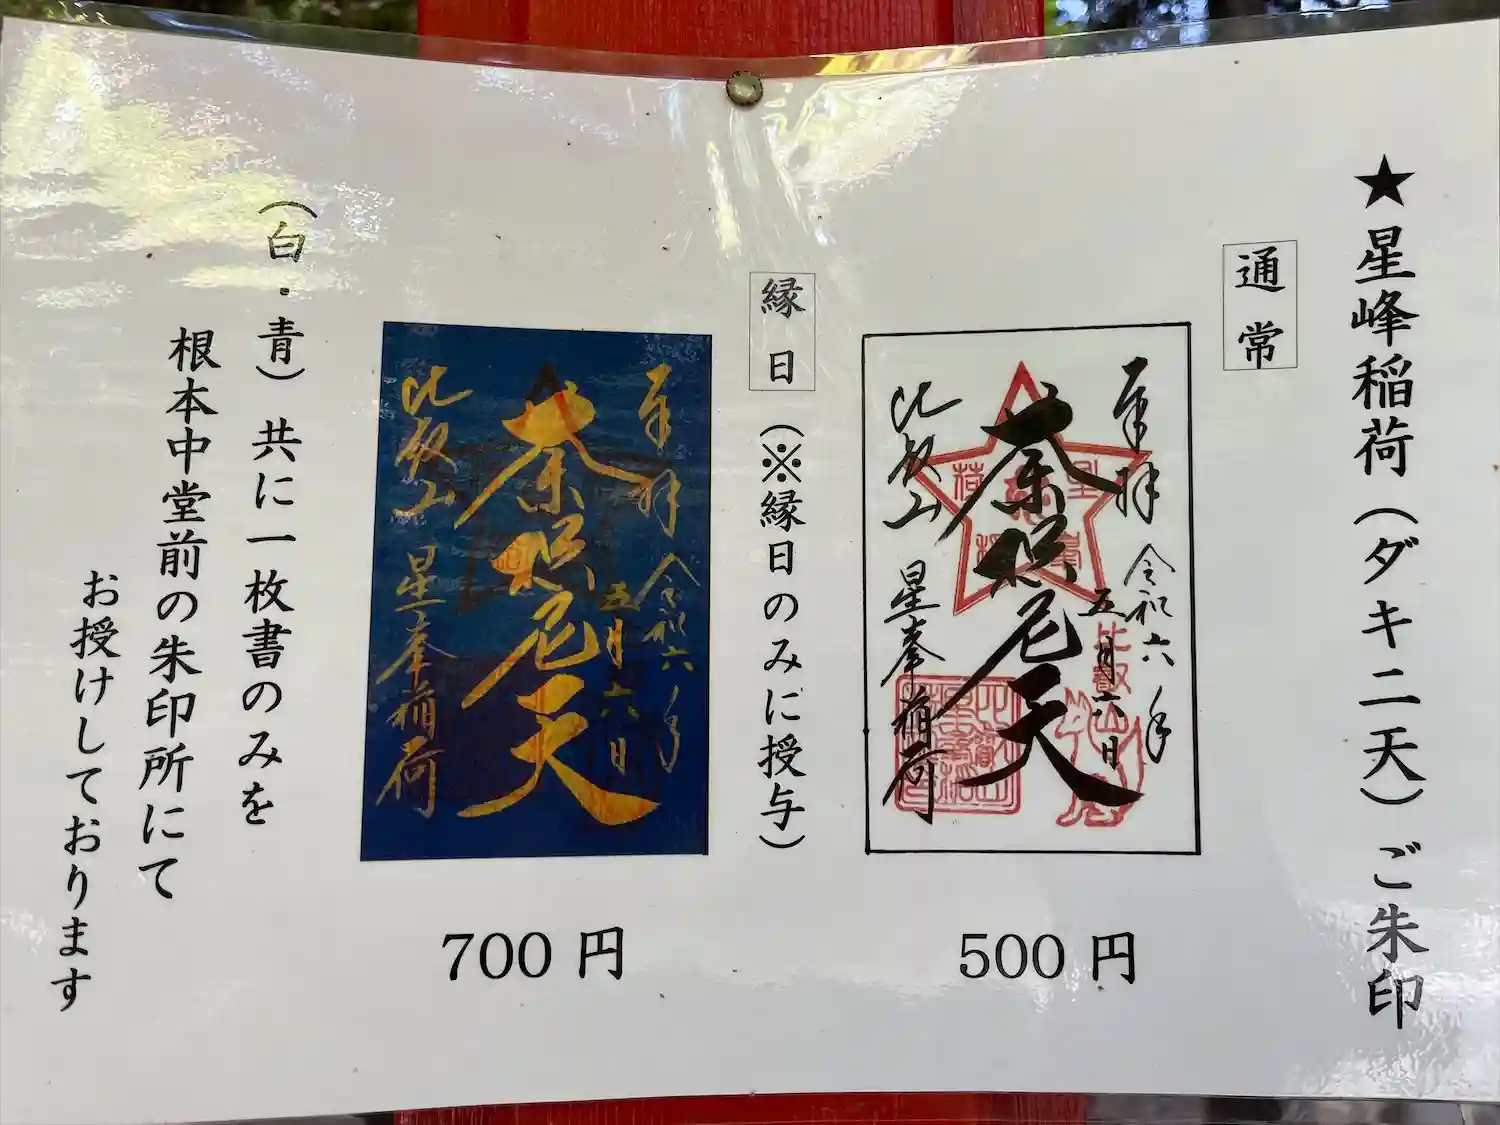 ★星峰稲荷(ダキニ天)ご朱印
通常
奉拝
令和六年
五月六日
荼枳尼天
比叡山 星峯稲荷
500 円
縁日(※縁日のみに授与)
奉拝
令和六年
五月六日
荼枳尼天
比叡山 星峯稲荷
700 円
(白・青)共に一枚書のみを
根本中堂前の朱印所にて
お授けしております